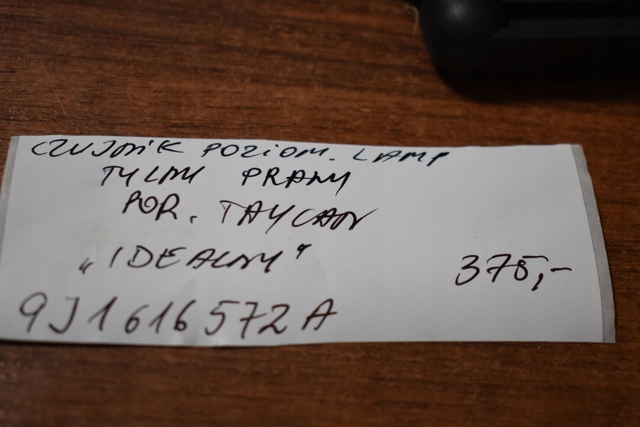 CZUJNIK POZIOM. LAMP
TYLNY PRAWY
POR. TAYCAN
„IDEALNY" 375,-
9J1616572A